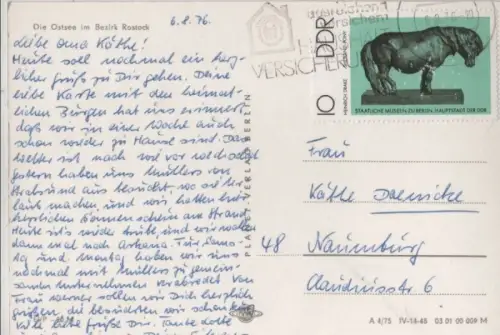 Die Ostsee im Bezirk Rostock
6.8.76
Liebe Oma Käthe!
Heute soll nochmal ein herz-
licher Gruß zu Dir gehen. Deine
liebe Karte mit den heimat-
lichen Burgen hat uns erinnert
daß wir in einer Woche auch
schon wieder zu Hause sind. Das
Wetter ist nach wie vor
gestern haben uns Müllers von
Stralsund aus besucht, wo sie
und wir hatten
Sonnenschein am Strand
Heute ist's wieder trüb, und wir wollen
dann mal nach Arkona. Für Sams-
tag und Montag haben wir uns
nochmal mit Müllers zu gemein-
samen Unternehmen verabredet. Von
Frau Werner sollen wir Dich herzlich
grüßen, die besuchten wir
Viele liebe Grüße Dir
PLANET-VERLAG BERLIN
VERSICHERUNG
DDR
10
HEINRICH DRAKE
STAATLICHE MUSEEN ZU BERLIN, HAUPTSTADT DER DDR
Frau
Käthe Doenicke
48 Naumburg
Claudiusstr 6
A 4/75 IV-14-45 03 01 00 009 M